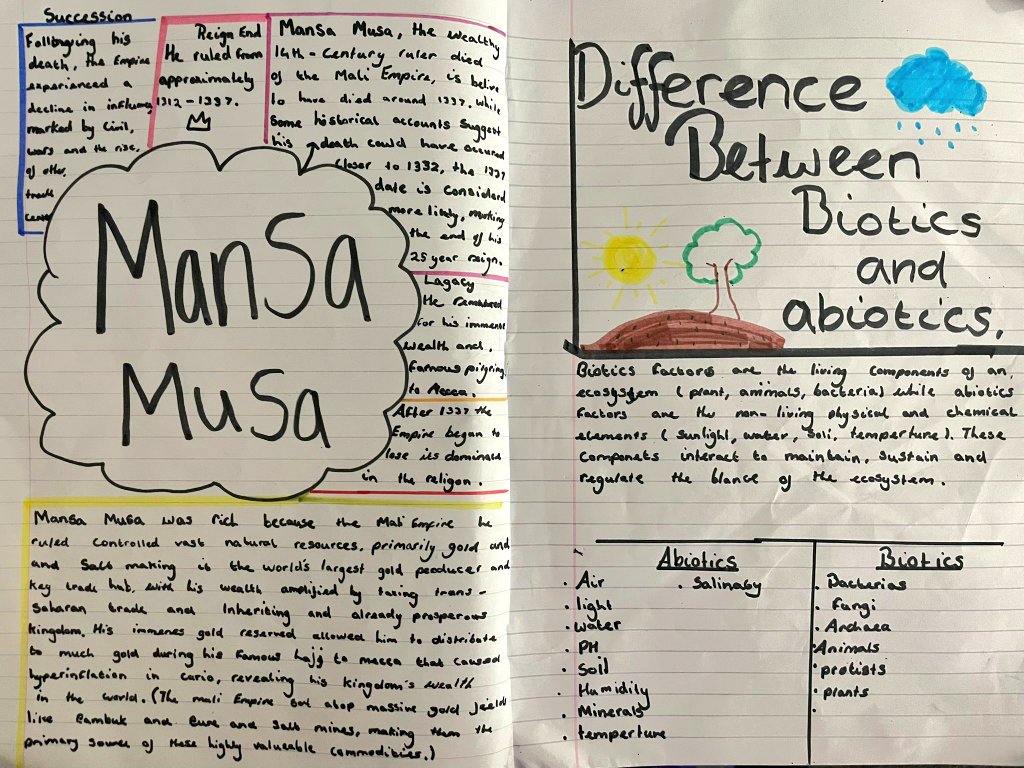 Succession
Following his
death, the Empire
experianced a
decline in influency
marked by Civil,
wars and the rise,
of other,
trade
Reign End
He ruled from
approximately
1312 - 1337.
Mansa Musa, the wealthy
14th - Century ruler died
of the Mali Empire, is belive
to have died around 1337. While
some historical accounts suggest
his death could have accured
closer to 1332, the 1337
date is considerd
more likely, marking
the end of his
25 year reign.
Lagacy
He remembered
for his immense
wealth and,
famous pilgrim
to Mecca.
After 1337 the
Empire began to
lose its dominate
in the religon.
ManSa
MuSa
Mansa Musa was rich because the Mali Empire he
ruled controlled vast natural resources, primarily gold and
and Salt making is the world's largest gold peoducer and
key trade hub, with his wealth amplified by taxing trans-
Saharan trade and Inheriting and already prosperous
kingdom. His immenes gold reserved allowed him to distribute
to much gold during his famous hajj to mecca that caused
hyperinflation in cario, revealing his kingdom's wealth
in the world. (The mali Empire sat atop massive gold fields
like Bambuk and Bure and Salt mines, making them the
primary source of these highly valueable commodities.)
Difference
Between
Biotics
and
abiotics.
Biotics factors are the living components of an
ecosgstem (plant, animals, bacteria) while abiotics
factors are the non-living physical and chemical
elements (sunlight, water, soli, temperture). These
componets interact to maintain, sustain and
regulate the blance of the ecosystem.
Abiotics
. Air
. Salinaty
. light
. water
. PH
. Soil
. Humidily
. Minerals
. temperture
Biotics
. Bacterias
. Fungi
. Archaea
. Animals
. protists
. plants
.